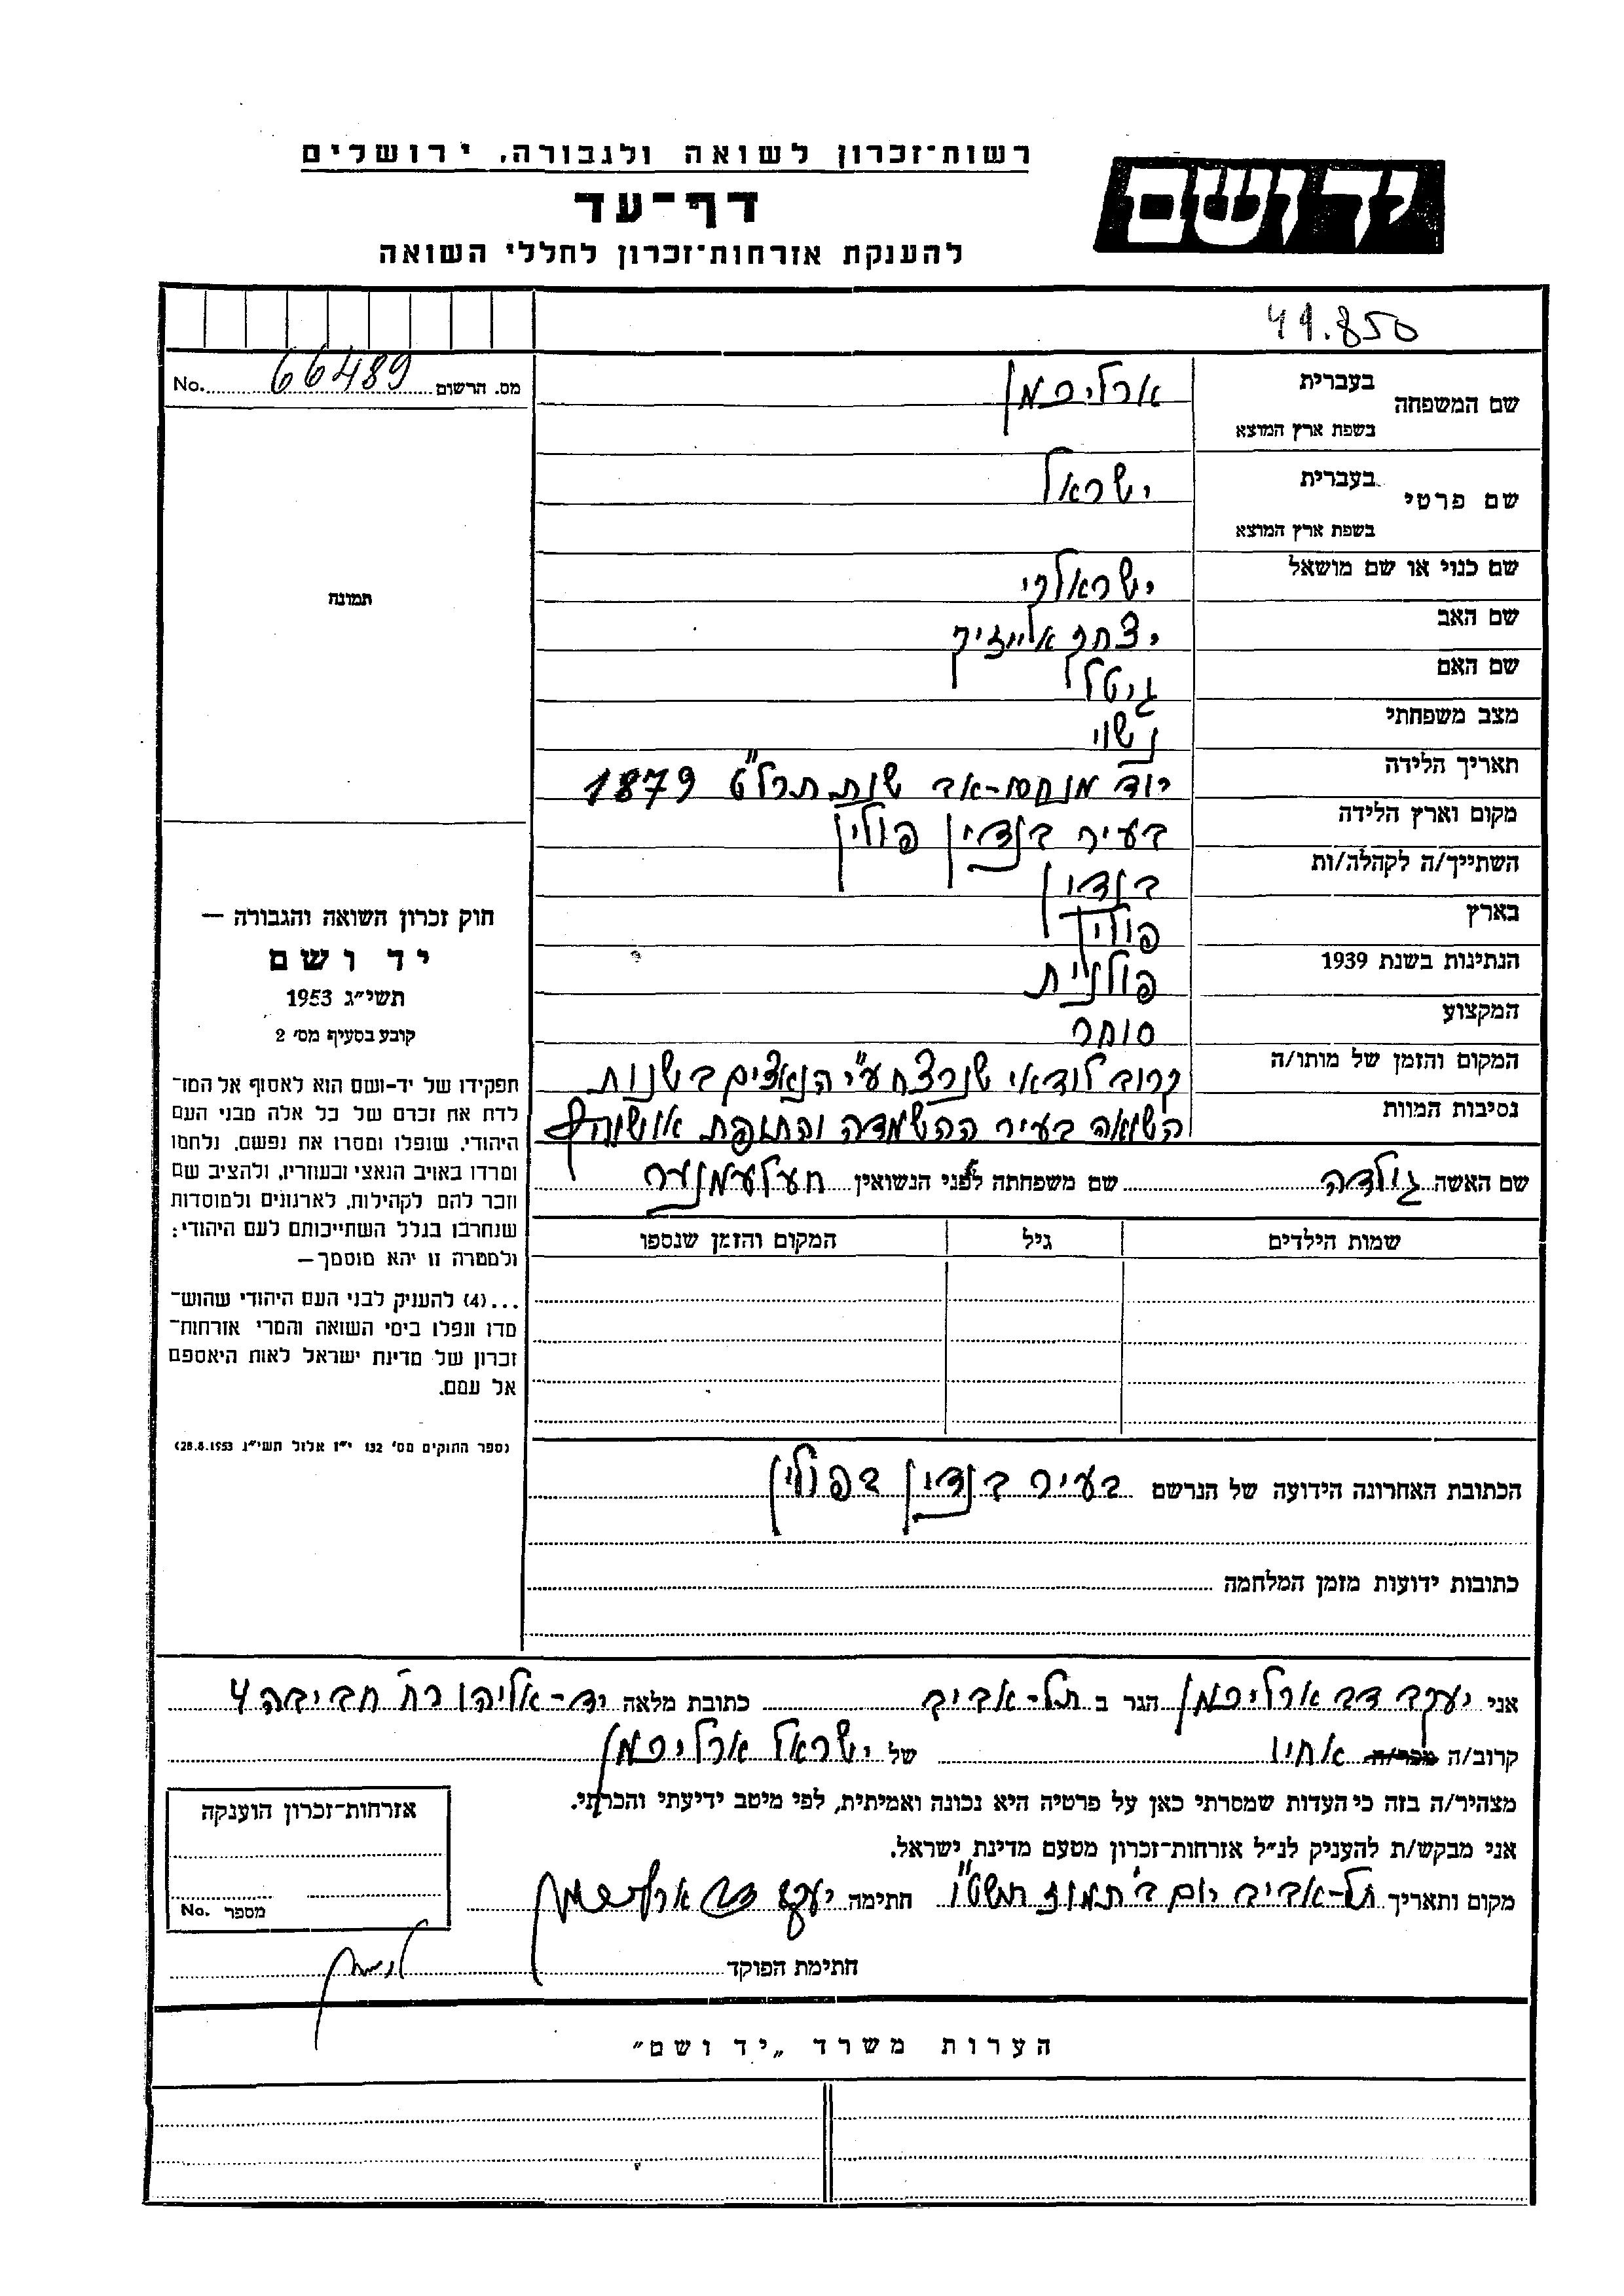 רשות־זכרון לשואה ולגבורה, ירושלים
יד ושם
דף־עד
להענקת אזרחות־זכרון לחללי השואה
49.850
No. 66489 מס. הרשום
שם המשפחה בעברית ארליכמן
בשפת ארץ המוצא
שם פרטי בעברית ישראל
בשפת ארץ המוצא
שם כנוי או שם מושאל ישראלכי
שם האב יצחק אייזיק
שם האם גיטל
מצב משפחתי נשוי
תאריך הלידה יוד מנחם-אב שנת תרל"ט 1879
מקום וארץ הלידה בעיר בנדין פולין
השתייך/ה לקהלה/ות בנדין
בארץ פולין
הנתינות בשנת 1939 פולנית
המקצוע סוחר
המקום והזמן של מותו/ה קרוב לודאי שנרצח ע"י הנאצים בשנות
נסיבות המוות השואה בעיר ההשמדה והתופת אושוויץ
שם האשה גולדה שם משפחתה לפני הנשואין
שמות הילדים גיל המקום והזמן שנספו
תמונה
חוק זכרון השואה והגבורה —
יד ושם
תשי״ג 1953
קובע בסעיף מס׳ 2
תפקידו של יד-ושם הוא לאסוף אל המו־
לדת את זכרם של כל אלה מבני העם
היהודי, שנפלו ומסרו את נפשם, נלחמו
ומרדו באויב הנאצי ובעוזריו, ולהציב שם
וזכר להם לקהילות, לארגונים ולמוסדות
שנחרבו בגלל השתייכותם לעם היהודי:
ולמטרה זו יהא מוסמך—
...(4) להעניק לבני העם היהודי שהוש־
מדו ונפלו בימי השואה והמרי אזרחות־
זכרון של מדינת ישראל לאות היאספם
אל עמם.
(ספר החוקים מס׳ 132 י״ז אלול תשי״ג 28.8.1953)
הכתובת האחרונה הידועה של הנרשם בעיר בנדין בפולין
כתובות ידועות מזמן המלחמה
אני יעקב דב ארליכמן הגר ב תל-אביב כתובת מלאה יד-אליהו רח' חביבה 4
קרוב/ה מכר/ה אחיו של ישראל ארליכמן
מצהיר/ה בזה כי העדות שמסרתי כאן על פרטיה היא נכונה ואמיתית, לפי מיטב ידיעתי והכרתי.
אני מבקש/ת להעניק לנ״ל אזרחות־זכרון מטעם מדינת ישראל.
מקום ותאריך תל-אביב יום ב' תמוז תשט"ו חתימה יעקב דב ארליכמן
חתימת הפוקד
אזרחות־זכרון הוענקה
No. מספר
הערות משרד „יד ושם״